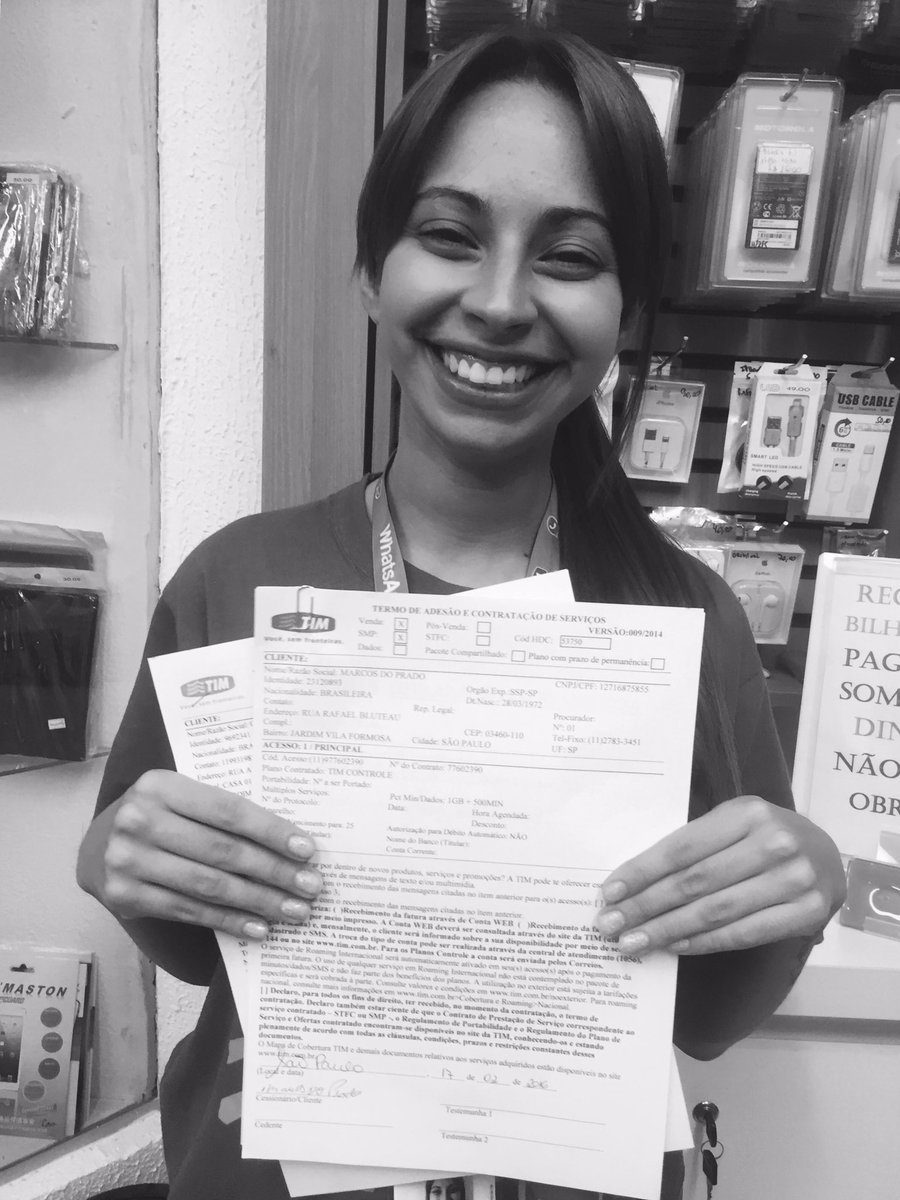 TIM
Você, sem fronteiras.
TERMO DE ADESÃO E CONTRATAÇÃO DE SERVIÇOS
VERSÃO:009/2014
Venda: X Pós-Venda:
SMP: X STFC: Cód HDC: 53750
Dados: Pacote Compartilhado: Plano com prazo de permanência:
CLIENTE:
Nome/Razão Social: MARCOS DO PRADO CNPJ/CPF: 12716875855
Identidade: 23120893 Orgão Exp.:SSP-SP
Nacionalidade: BRASILEIRA Dt.Nasc.: 28/03/1972
Contato: Rep. Legal: Procurador:
Endereço: RUA RAFAEL BLUTEAU Nº: 01
Compl.: CEP: 03460-110 Tel-Fixo: (11)2783-3451
Bairro: JARDIM VILA FORMOSA Cidade: SÃO PAULO UF: SP
ACESSO: 1 / PRINCIPAL
Cód. Acesso:(11)977602390 Nº do Contrato: 77602390
Plano Contratado: TIM CONTROLE
Portabilidade: Nº a ser Portado:
Múltiplos Serviços: Pct Min/Dados: 1GB + 500MIN
Nº do Protocolo: Data: Hora Agendada:
Aparelho: Desconto:
vencimento para: 25 Autorização para Débito Automático: NÃO
(Titular): Nome do Banco (Titular):
Conta Corrente:
ar por dentro de novos produtos, serviços e promoções? A TIM pode te oferecer
através de mensagens de texto e/ou multimidia.
com o recebimento das mensagens citadas no item anterior para o(s) acesso(s): [ ]
com o recebimento das mensagens citadas no item anterior.
( )Recebimento da fatura através de Conta WEB ( )Recebimento da
por meio impresso. A Conta WEB deverá ser consultada através do site da TIM
e, mensalmente, o cliente será informado sobre a sua disponibilidade por meio de
cadastrado e SMS. A troca do tipo de conta pode ser realizada através da central de atendimento (1056),
144 ou no site www.tim.com.br. Para os Planos Controle a conta será enviada pelos Correios.
O serviço de Roaming Internacional será automaticamente ativado em seu(s) acesso(s) após o pagamento da
primeira fatura. O uso de qualquer serviço em Roaming Internacional não está contemplado no pacote de
minutos/dados/SMS e não faz parte dos benefícios dos planos. A utilização no exterior está sujeita a tarifações
específicas e será cobrada à parte. Consulte valores e condições em www.tim.com.br/noexterior. Para roaming
nacional, consulte mais informações em www.tim.com.br>Cobertura e Roaming>Nacional.
[ ] Declaro, para todos os fins de direito, ter recebido, no momento da contratação, o termo de
contratação. Declaro também estar ciente de que o Contrato de Prestação de Serviço correspondente ao
serviço contratado – STFC ou SMP -, o Regulamento de Portabilidade e o Regulamento do Plano de
Serviço e Ofertas contratado encontram-se disponíveis no site da TIM, conhecendo-os e estando
plenamente de acordo com todas as cláusulas, condições, prazos e restrições constantes desses
documentos.
O Mapa de Cobertura TIM e demais documentos relativos aos serviços adquiridos estão disponíveis no site
www.tim.com.br
São Paulo 17 de 02 de 2016
(Local e data)
Cessionário/Cliente
Testemunha 1
Cedente
Testemunha 2
TIM
CLIENTE:
WhatsA
MOTOROLA
LED 49.00
SMART LED
HIGH SPEED USB CABLE
USB CABLE
CABLE
MASTON
50.00
30.00
REC
BILH
PAG
SOM
DIN
NÃO
OBR